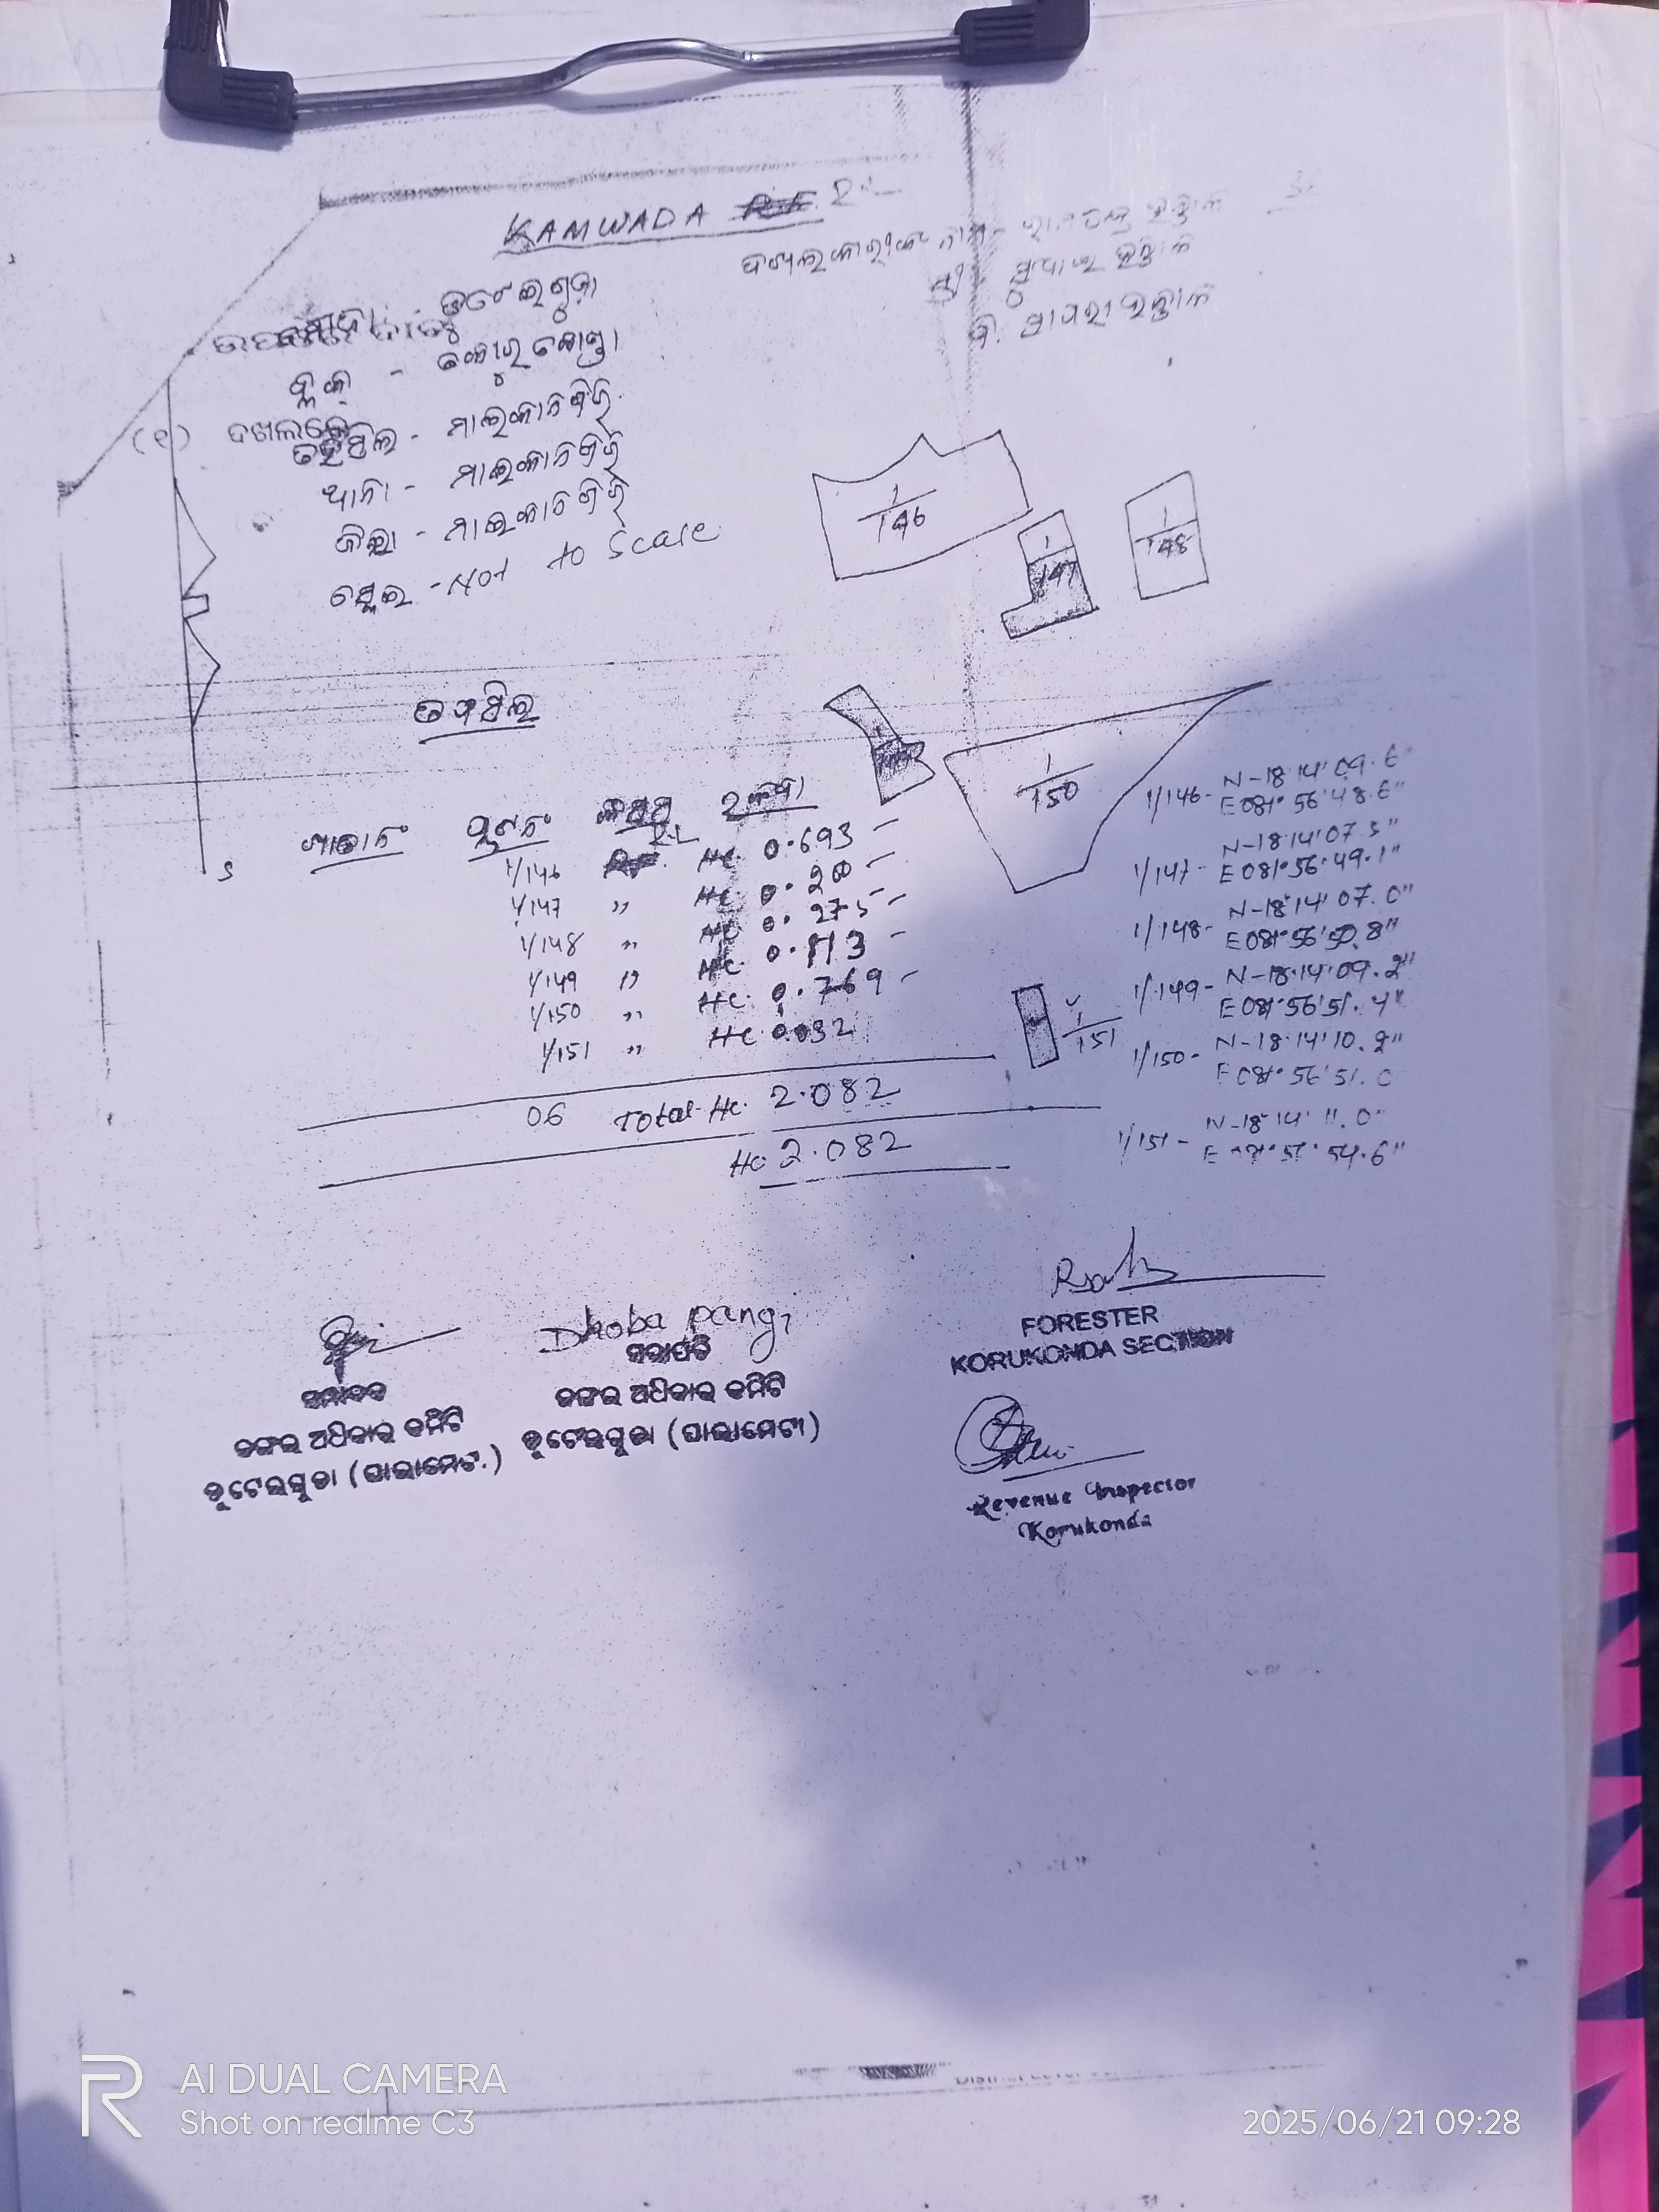 KAMWADA
ବ୍ଲକ୍ - କୋରୁକୋଣ୍ଡା
(୧) ଦଖଲକେ
ତହସିଲ - ମାଲକାନଗିରି
ଥାନା - ମାଲକାନଗିରି
ଜିଲ୍ଲା - ମାଲକାନଗିରି
ସ୍କେଲ - Not to Scale
1/146
1/147
1/148
1/150
1/151
ତଫସିଲ
ଖାତା ନଂ ପ୍ଲଟ ନଂ କିସମ ରକବା
1/146 RL Hc. 0.693
1/147 " Hc. 0.200
1/148 " Hc 0.275
1/149 " Hc. 0.113
1/150 " Hc. 0.769
1/151 " Hc 0.032
06 Total Hc. 2.082
Hc 2.082
S
1/146- N-18°14'09.6"
E081°56'48.6"
1/147- N-18°14'07.5"
E081°56'49.1"
1/148- N-18°14'07.0"
E081°56'50.8"
1/149- N-18°14'09.2"
E081°56'51.4"
1/150- N-18°14'10.2"
E081°56'51.0
1/151- N-18°14'11.0"
54.6"
Dhoba pangi
ସଭାପତି
ଜଙ୍ଗଲ ଅଧିକାର କମିଟି
ଡୁଟେଲଗୁଡା (ପାଲାମେଟୀ)
ସମ୍ପାଦକ
ଜଙ୍ଗଲ ଅଧିକାର କମିଟି
ଡୁଟେଲଗୁଡା (ପାଲାମେଟୀ)
FORESTER
KORUKONDA SECTION
Revenue Inspector
Korukonda
AI DUAL CAMERA
Shot on realme C3
2025/06/21 09:28